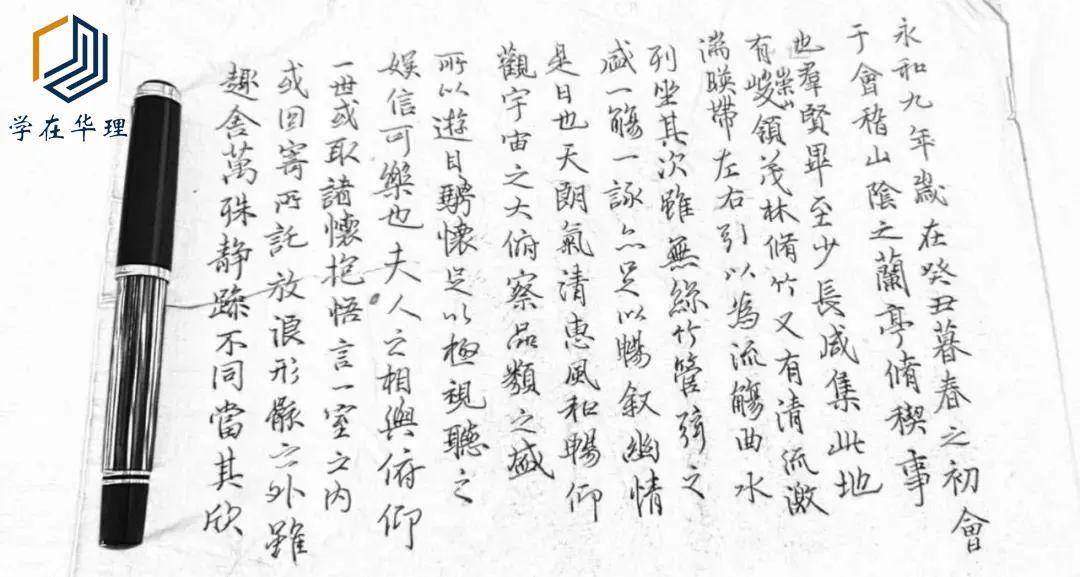 永和九年歲在癸丑暮春之初會
于會稽山陰之蘭亭脩稧事
也羣賢畢至少長咸集此地
有崇山峻領茂林脩竹又有清流激
湍暎帶左右引以為流觴曲水
列坐其次雖無絲竹管弦之
盛一觴一詠亦足以暢敘幽情
是日也天朗氣清惠風和暢仰
觀宇宙之大俯察品類之盛
所以遊目騁懷足以極視聽之
娛信可樂也夫人之相與俯仰
一世或取諸懷抱悟言一室之内
或因寄所託放浪形骸之外雖
趣舍萬殊静躁不同當其欣
学在华理